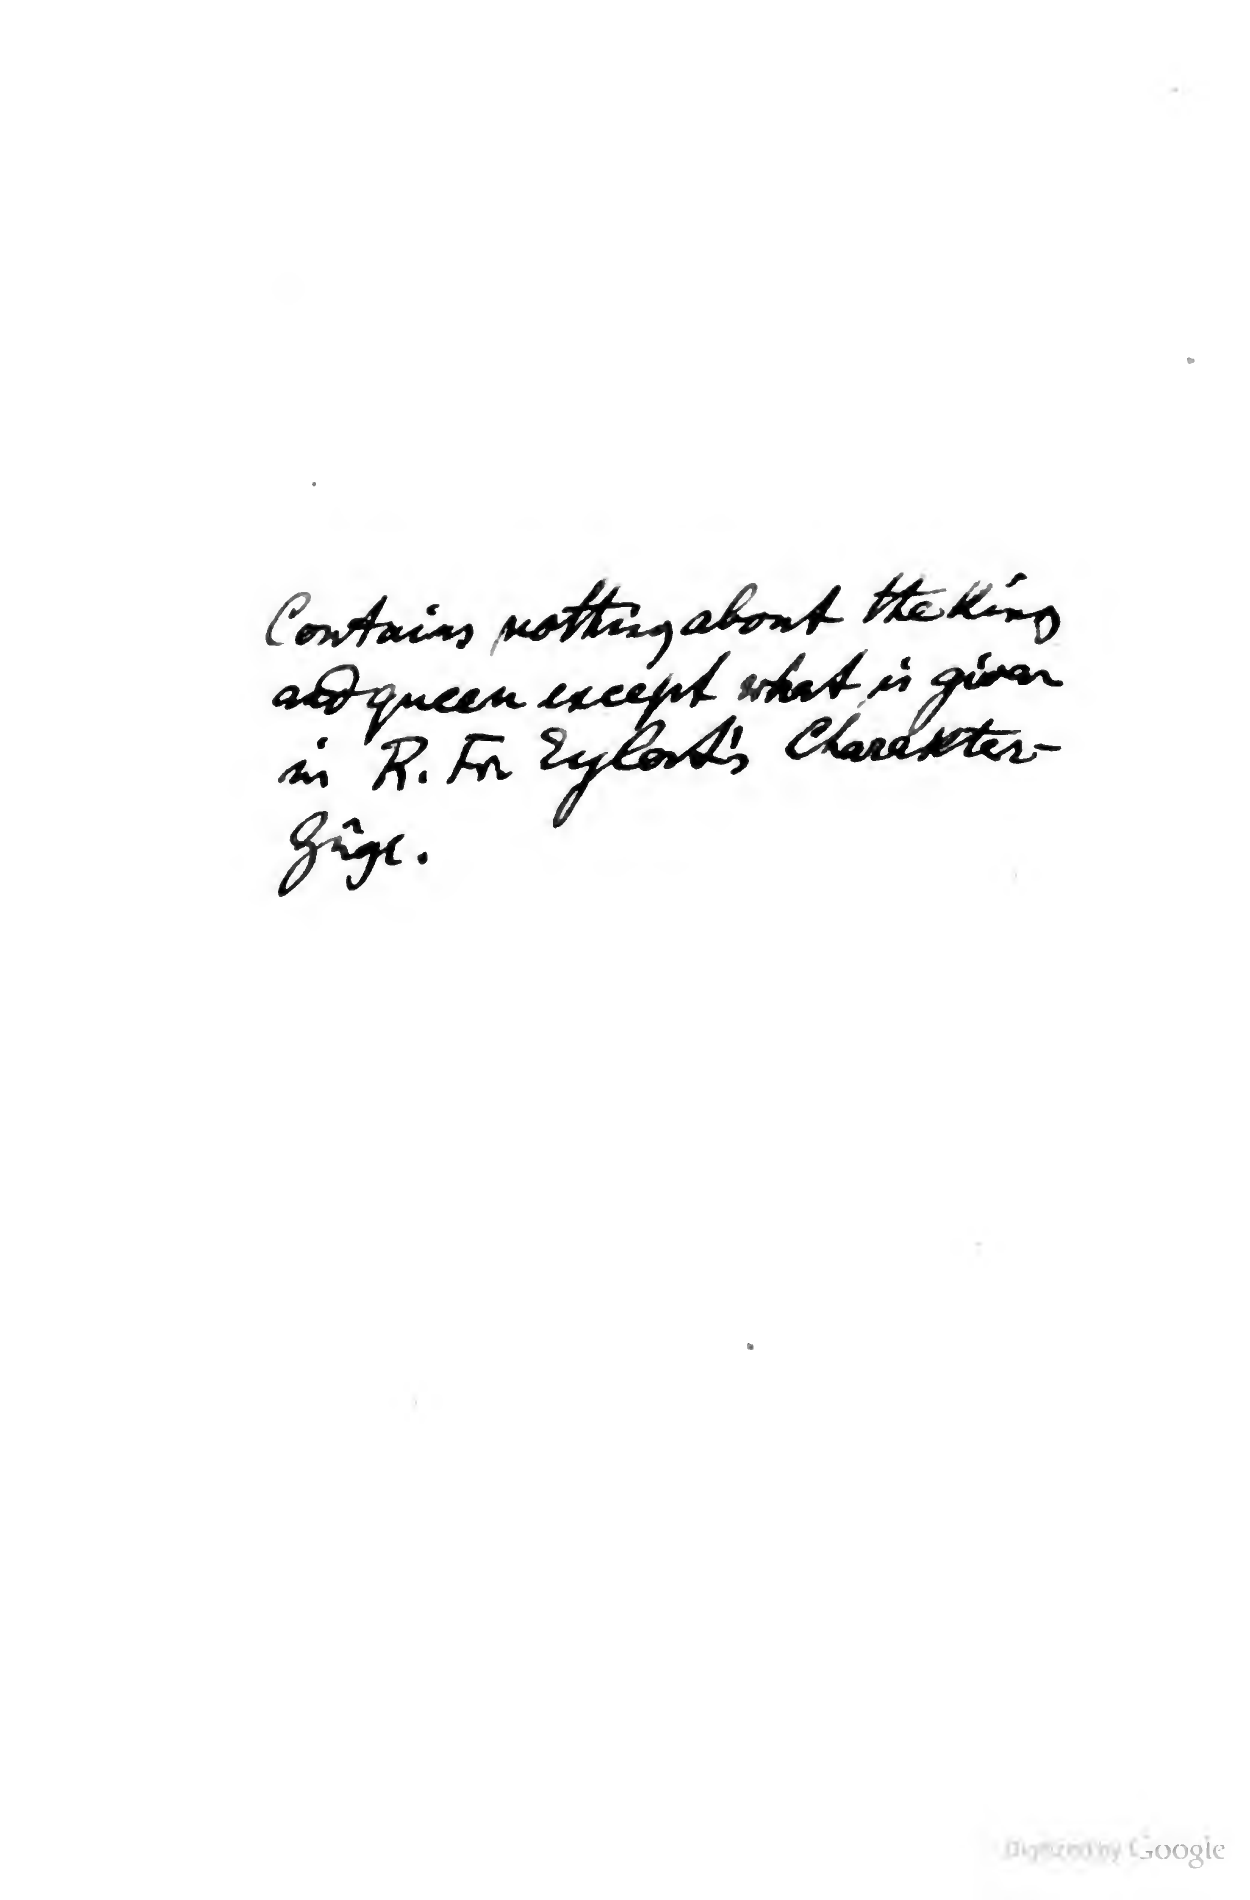 Contains nothing about the King
and queen except what is given
in R. Fr Eylert's Charakter-
Züge.
Digitized by Google